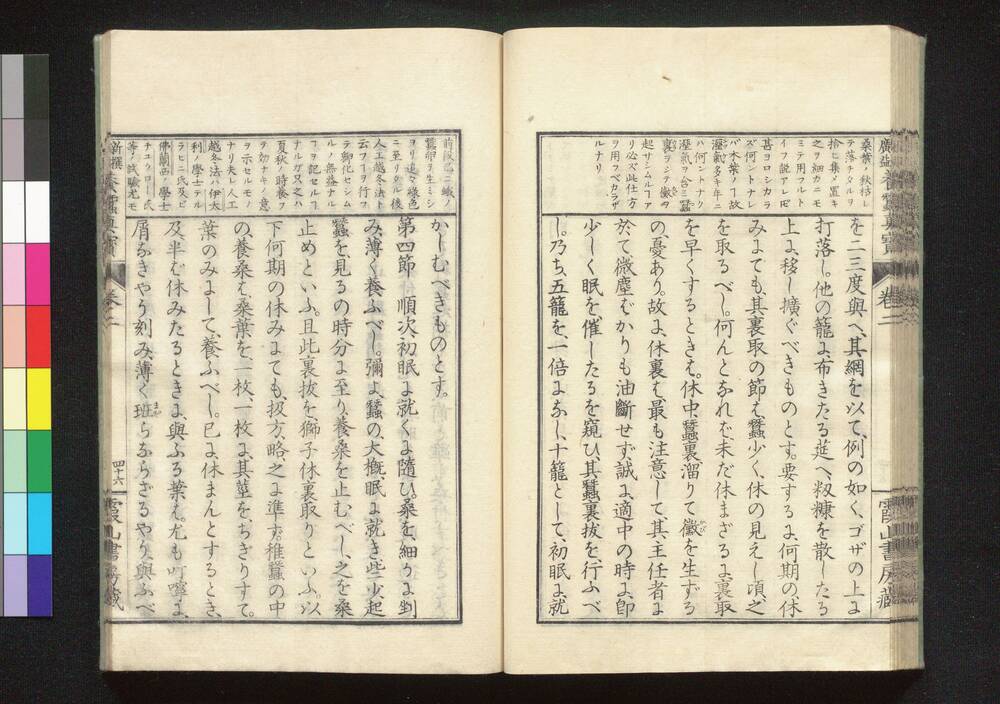 桑葉ハ秋枯レ
テ落チタルヲ
拾ヒ集メ置キ
之ヲ細カニモ
ミテ用フルト
イフ説アレ𪜈
甚ヨロシカラ
ズ何ントナレ
バ木葉ノ丁故
濕氣多キユニ
ハ何ントナク
濕氣ヲ含ミ蠶
裏ヲシテ黴ヲ
起サシムル丁ア
リ必ズ此仕方
ヲ用フベカラザ
ルナリ
を二三度與へ、其網を以て、例の如く、ゴザの上よ
打落し。他の籠よ、布きたる莚へ、籾糠を散したる
上よ、移し擴ぐべきものとす。要するよ、何期の休
みよても、其裏取の節も、蠶少く、休の見えし頃、之
を取るべし。何んとなれば、未だ休まざるよ、裏取
を早くするときも。休中、蠶裏溜りて黴を生ずる
の、憂あり。故よ、休裏も、最も注意して、其主任者よ
於て微塵ばかりも油斷せず、誠よ適中の時よ卽
少しく眠を催したるを窺ひ、其蠶裏拔を行ふべ
し。乃ち、五籠を、一倍よなし、十籠として、初眠よ就
霞山書房藏
卷二
前段ニ二蛾ノ
蠶卵ヲ生ミシ
ヨリ追々綠色
ニ至リタル後
人工越冬法ト
云フ丁ヲ行フ
テ孵化セシム
ルノ無益ナル
丁ヲ記セルフ
ナルガ又之ハ
夏秋ノ時養フ
ヲ効ナキノ意
ヲ示セルモノ
ナリ夫レ人工
越冬法ハ伊太
利ノ學士テル
ラヒニ氏及ビ
佛蘭西ノ學士
チュクロー氏
等ノ試驗尤モ
かしむべきものとす。
第四節　順次、初眠よ就くよ隨ひ、桑を、細かよ剉
み、薄く養ふべし。彌よ、蠶の、大概、眠よ就き、些少、起
蠶を、見るの時分よ至り、養桑を止む、べし、之を桑
止めといふ。且此裏拔を、獅子休裏取りといふ。以
下何期の休みよても、扱方、略、之よ準ず。稚蠶の中
の、養桑も、桑葉を、一枚、一枚よ、其莖を、ちぎりすて。
葉のみよして、養ふべし。已よ、休まんとするとき、
及半ば休みたるときよ、與ふる葉も。尤も叮嚀よ、
屑なきやう刻み、薄く班らならざるやう、與ふべ
新撰養蠶眞寶
卷二
四十六
霞山書房藏